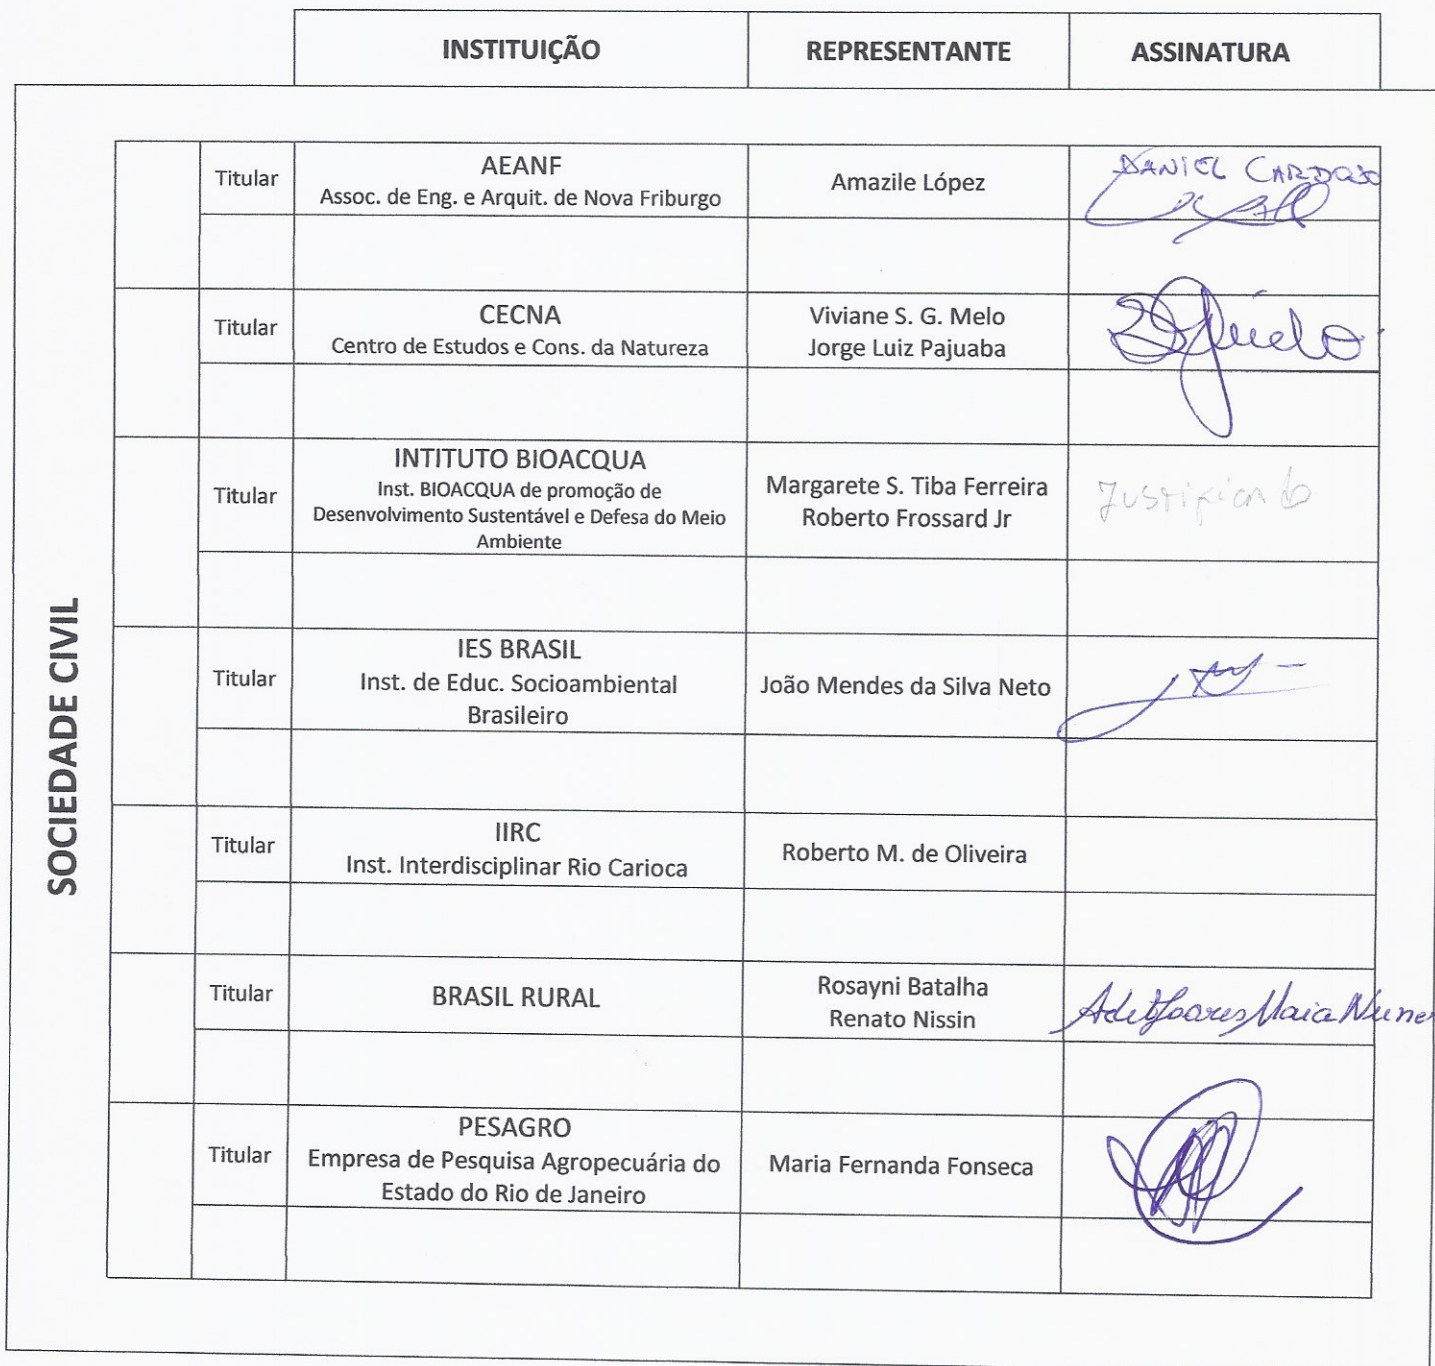 INSTITUIÇÃO
REPRESENTANTE
ASSINATURA
SOCIEDADE CIVIL
Titular
AEANF
Assoc. de Eng. e Arquit. de Nova Friburgo
Amazile López
DANIEL CARDOSO
Titular
CECNA
Centro de Estudos e Cons. da Natureza
Viviane S. G. Melo
Jorge Luiz Pajuaba
Titular
INTITUTO BIOACQUA
Inst. BIOACQUA de promoção de
Desenvolvimento Sustentável e Defesa do Meio
Ambiente
Margarete S. Tiba Ferreira
Roberto Frossard Jr
Titular
IES BRASIL
Inst. de Educ. Socioambiental
Brasileiro
João Mendes da Silva Neto
Titular
IIRC
Inst. Interdisciplinar Rio Carioca
Roberto M. de Oliveira
Titular
BRASIL RURAL
Rosayni Batalha
Renato Nissin
Soares Maia
Titular
PESAGRO
Empresa de Pesquisa Agropecuária do
Estado do Rio de Janeiro
Maria Fernanda Fonseca